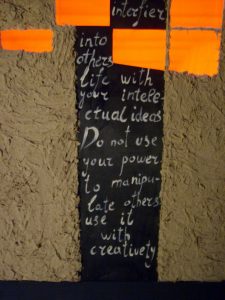 interfier
into
others
life with
your intele-
ctual ideas
Do not use
your power
to manipu-
late others
use it
with
creativety